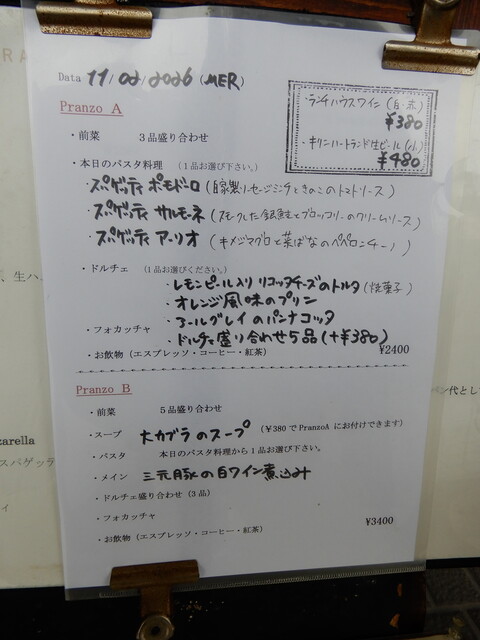 Data 11/02/2026 (MER)
ランチハウスワイン (白・赤)
¥380
・キリンハートランド生ビール (gl.)
¥480
Pranzo A
・前菜 3品盛り合わせ
・本日のパスタ料理 (1品お選び下さい。)
スパゲッティ ポモドーロ (自家製ソーセージミンチときのこのトマトソース)
スパゲッティ サルモーネ (スモークした銀鮭とブロッコリーのクリームソース)
スパゲッティ アーリオ (キメジマグロと菜ばなのペペロンチーノ)
・ドルチェ (1品お選びください。)
・レモンピール入り リコッタチーズのトルタ (焼菓子)
・オレンジ風味のプリン
・アールグレイのパンナコッタ
・ドルチェ盛り合わせ5品 (+¥380)
・フォカッチャ
・お飲物 (エスプレッソ・コーヒー・紅茶)
¥2400
Pranzo B
・前菜 5品盛り合わせ
・スープ 大カブラのスープ (¥380でPranzoA にお付けできます)
・パスタ 本日のパスタ料理から1品お選び下さい。
・メイン 三元豚の白ワイン煮込み
・ドルチェ盛り合わせ (3品)
・フォカッチャ
・お飲物 (エスプレッソ・コーヒー・紅茶)
¥3400
、生ハ
zarella
スパゲッテ
パン代とし